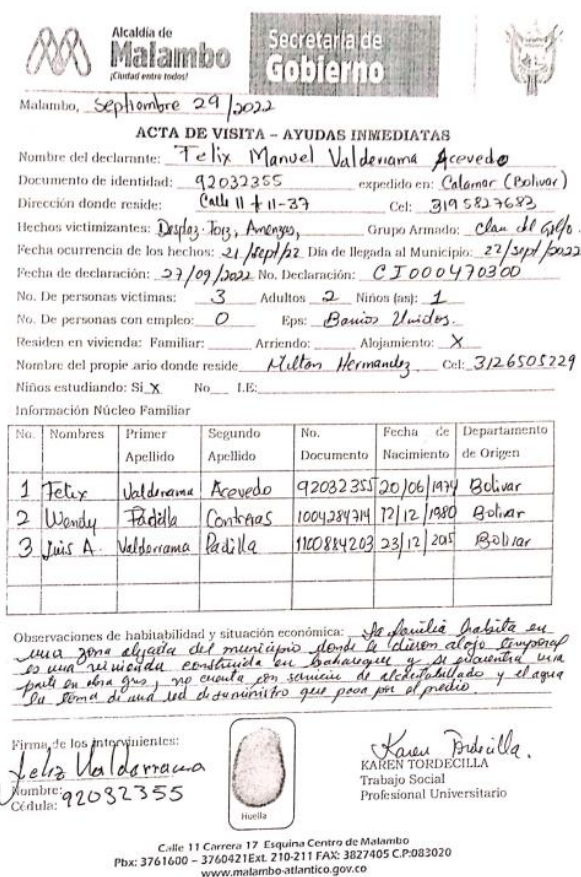 Alcaldía de
Malambo
¡Ciudad entre todos!
Secretaría de
Gobierno
Malambo, Septiembre 29/2022
ACTA DE VISITA – AYUDAS INMEDIATAS
Nombre del declarante: Felix Manuel Valderrama Acevedo
Documento de identidad: 92032355 expedido en: Calamar (Bolivar)
Dirección donde reside: Calle 11 # 11-37 Cel: 3195827683
Hechos victimizantes: Desplaz. Forz, Amenzas, Grupo Armado: clan del Golfo.
Fecha ocurrencia de los hechos: 21/sept/22 Día de llegada al Municipio: 22/sept/2022
Fecha de declaración: 27/09/2022 No. Declaración: CI000470300
No. De personas victimas: 3 Adultos 2 Niños (as): 1
No. De personas con empleo: 0 Eps: Barrios Unidos.
Residen en vivienda: Familiar: Arriendo: Alojamiento: X
Nombre del propie ario donde reside Milton Hernandez Cel: 3126505229
Niños estudiando: Si X No I.E:
Información Núcleo Familiar
No. Nombres Primer Apellido Segundo Apellido No. Documento Fecha de Nacimiento Departamento de Origen
1 Felix Valderrama Acevedo 92032355 20/06/1974 Bolivar
2 Wendy Padilla Contreras 1004284714 12/12/1980 Bolivar
3 Luis A. Valderrama Padilla 1100884203 23/12/2015 Bolivar
Observaciones de habitabilidad y situación económica: La familia habita en
una zona alejada del municipio donde le dieron alojo temporal
es una vivienda construida en bahareque y se encuentra una
parte en obra gris, no cuenta con servicio de alcantarillado y el agua
la toma de una red de suministro que pasa por el predio.
Firma de los intervinientes:
Felix Valderrama
Nombre:
Cédula: 92032355
Huella
Karen Tordecilla.
KAREN TORDECILLA
Trabajo Social
Profesional Universitario
Calle 11 Carrera 17 Esquina Centro de Malambo
Pbx: 3761600 – 3760421Ext. 210-211 FAX: 3827405 C.P:083020
www.malambo-atlantico.gov.co